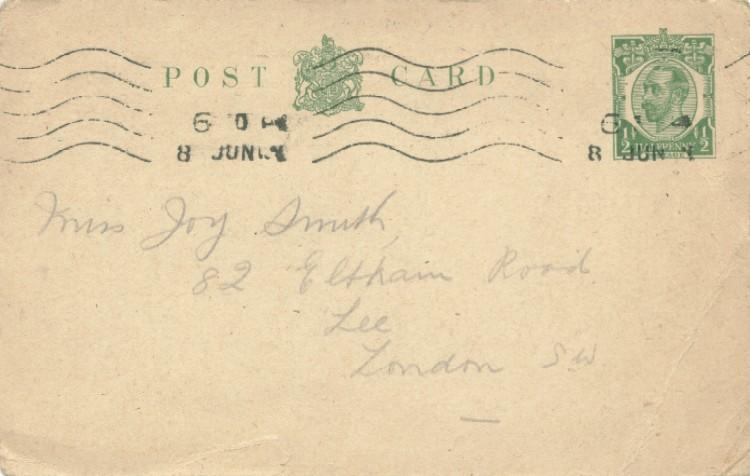 POST CARD
8 JUN
8 JUN
½ ½
HALFPENNY
Miss Joy Smith
82 Eltham Road
Lee
London SW